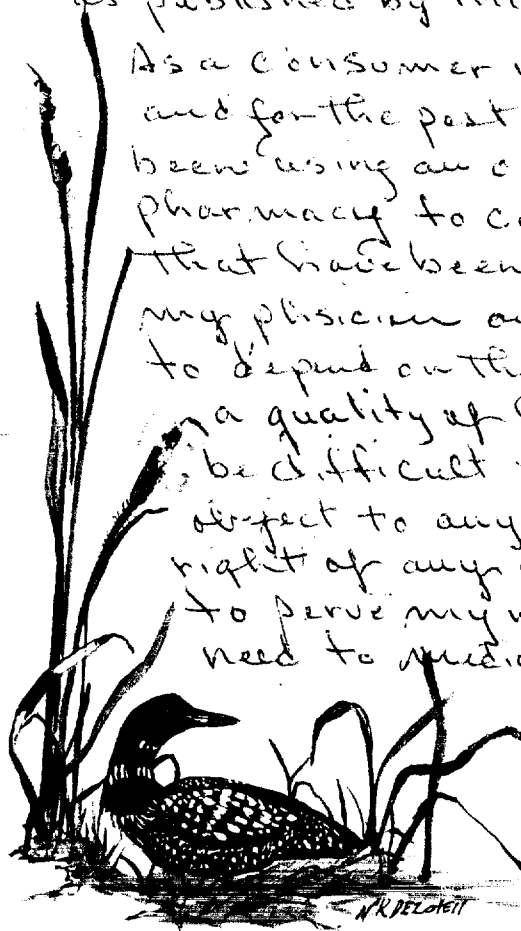 as published by
As a consumer
and for the past
been using an c
pharmacy to co
that have been
my phsician
to depend on th
a quality of
be difficult
object to any
right of any
to serve my
need to medic